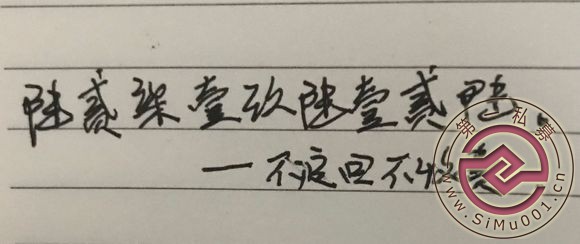 陆贰柒壹玖陆壹贰
一不盗回不
娱 私募
www.SiMu001.cn